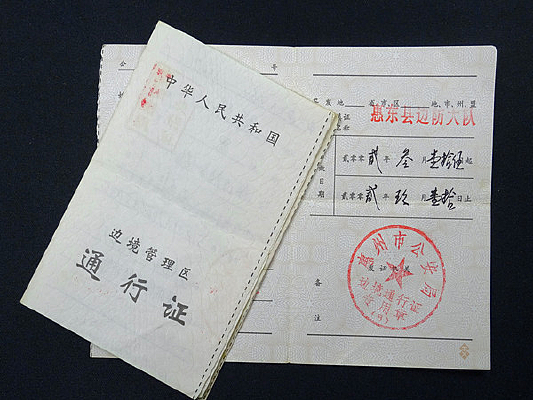 中华人民共和国
边境管理区
通行证
号
出发地
省市区
地、市、州、盟
惠东县边防大队
贰零零贰年叁月壹拾伍起
贰零零贰年玖月壹拾日止
日期
惠州市公安局
发证机关
边境通行证
专用章
备注